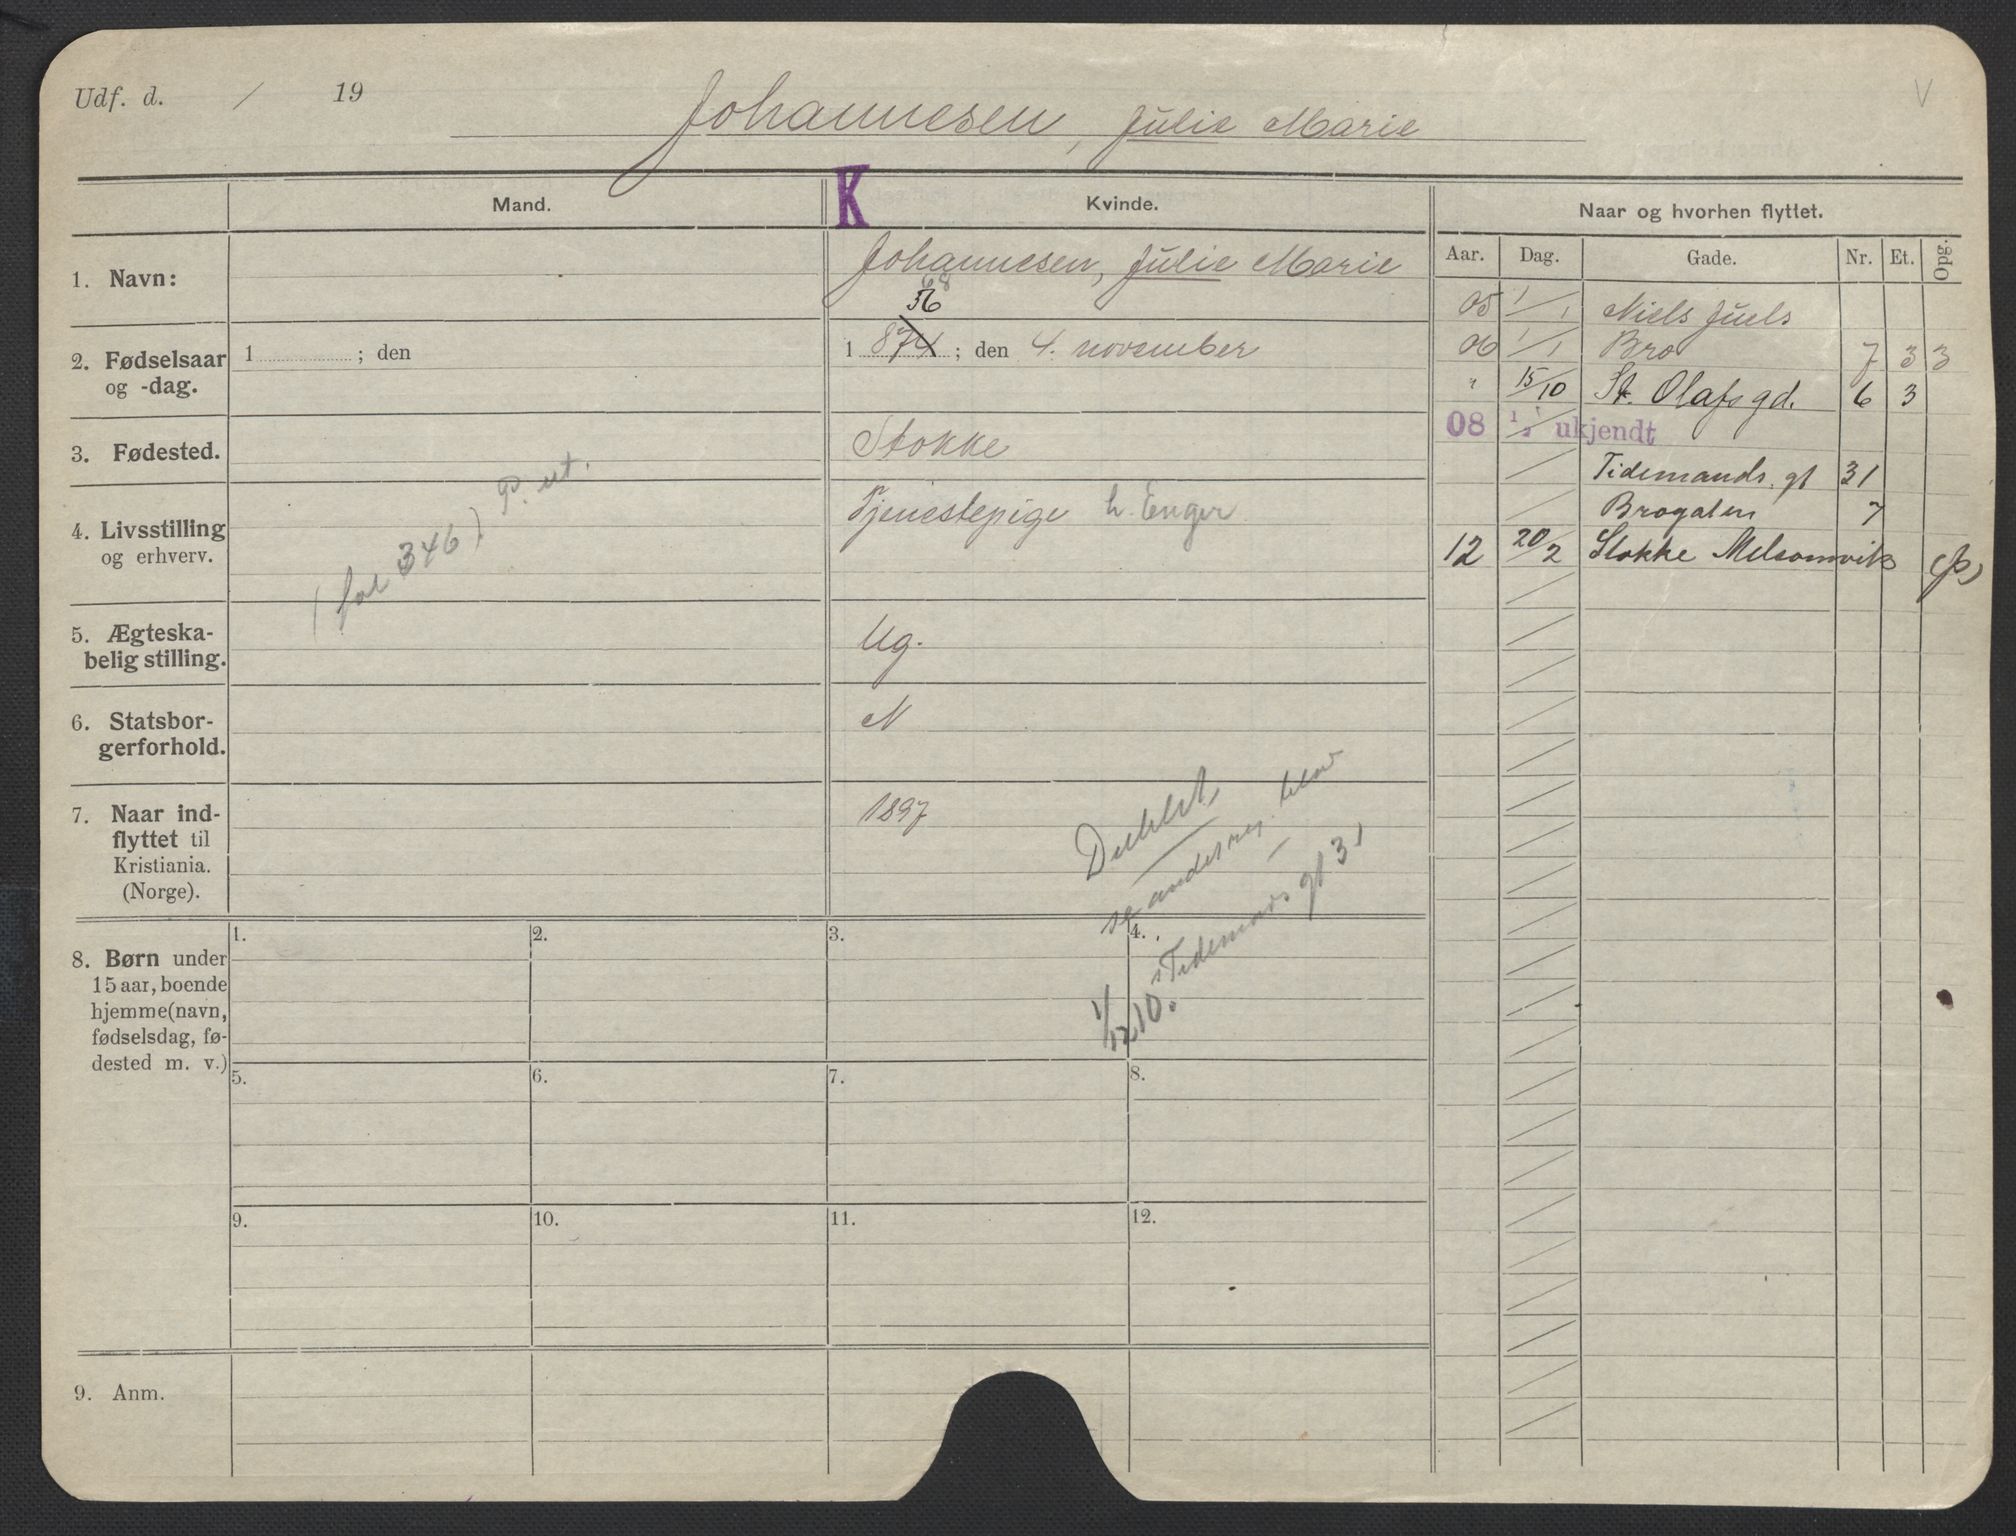 Udf. d. / 19
Johannesen, Julie Marie
V
K
Mand.
Kvinde.
Naar og hvorhen flyttet.
Aar. Dag. Gade. Nr. Et. Opg.
1. Navn:
Johannesen, Julie Marie
68
76
2. Fødselsaar
og -dag.
1 ; den
1 874 ; den 4. november
3. Fødested.
Stokke
4. Livsstilling
og erhverv.
Tjenestepige h. Enger
(fol 346) P. ut.
5. Ægteska-
belig stilling.
Ug.
6. Statsbor-
gerforhold.
N
7. Naar ind-
flyttet til
Kristiania.
(Norge).
1897
Dublet,
se andes reg. blad
Tidemans gt 31
1/12 10.
05 1/1 Niels Juels
06 1/1 Bro 7 3 3
" 15/10 St. Olafs gd. 6 3
08 1/2 ukjendt
/ Tidemands. gt 31
/ Brogaten 7
12 20/2 Stokke Melsomvik (p)
8. Børn under
15 aar, boende
hjemme (navn,
fødselsdag, fø-
dested m. v.)
1. 2. 3. 4.
5. 6. 7. 8.
9. 10. 11. 12.
9. Anm.